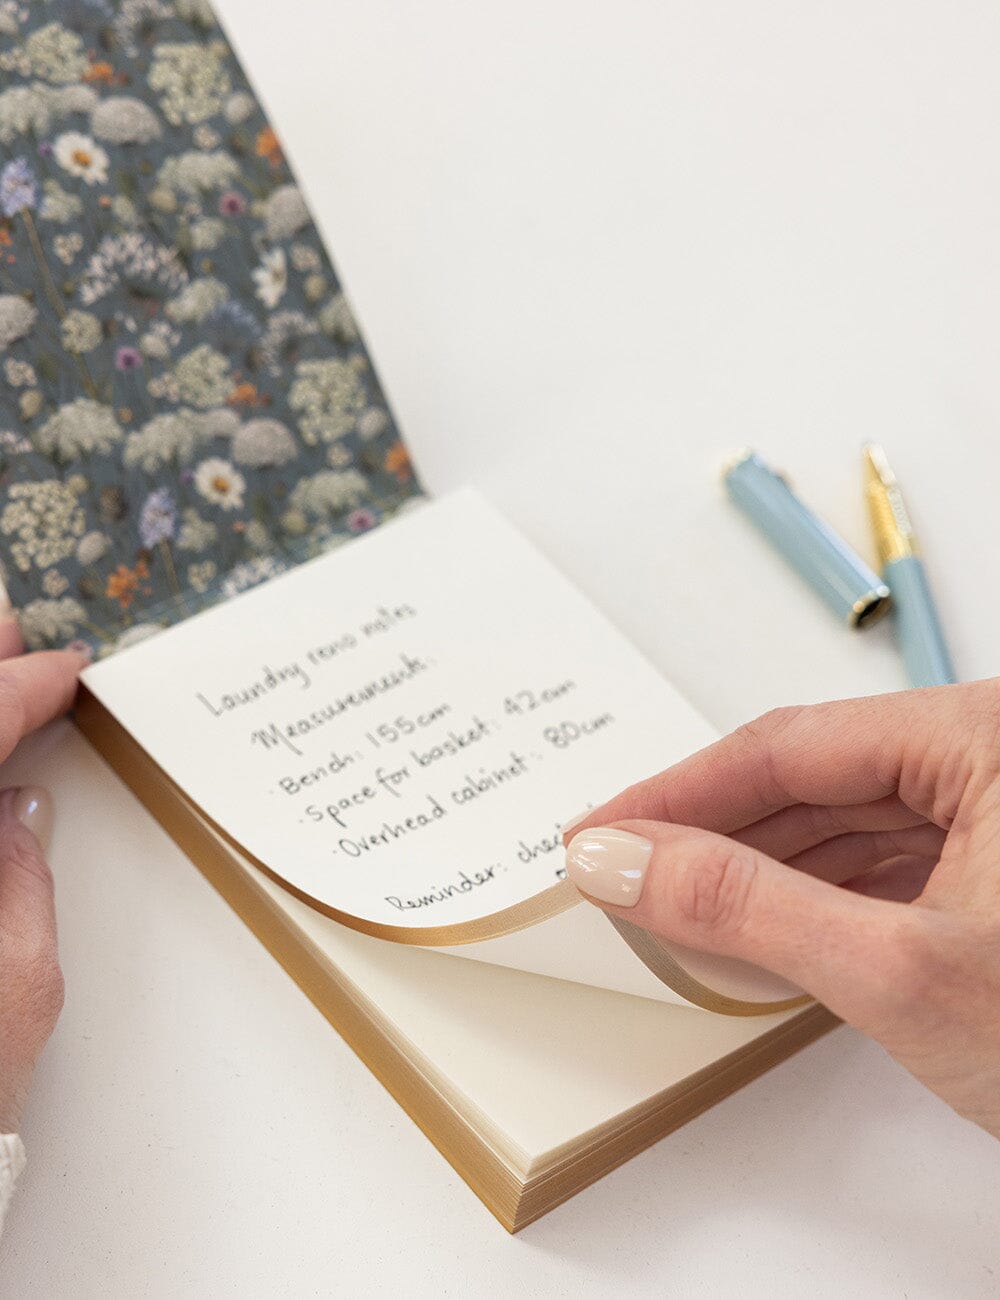 Laundry reno notes
Measurements:
· Bench: 155cm
· Space for basket: 42cm
· Overhead cabinet: 80cm
Reminder: